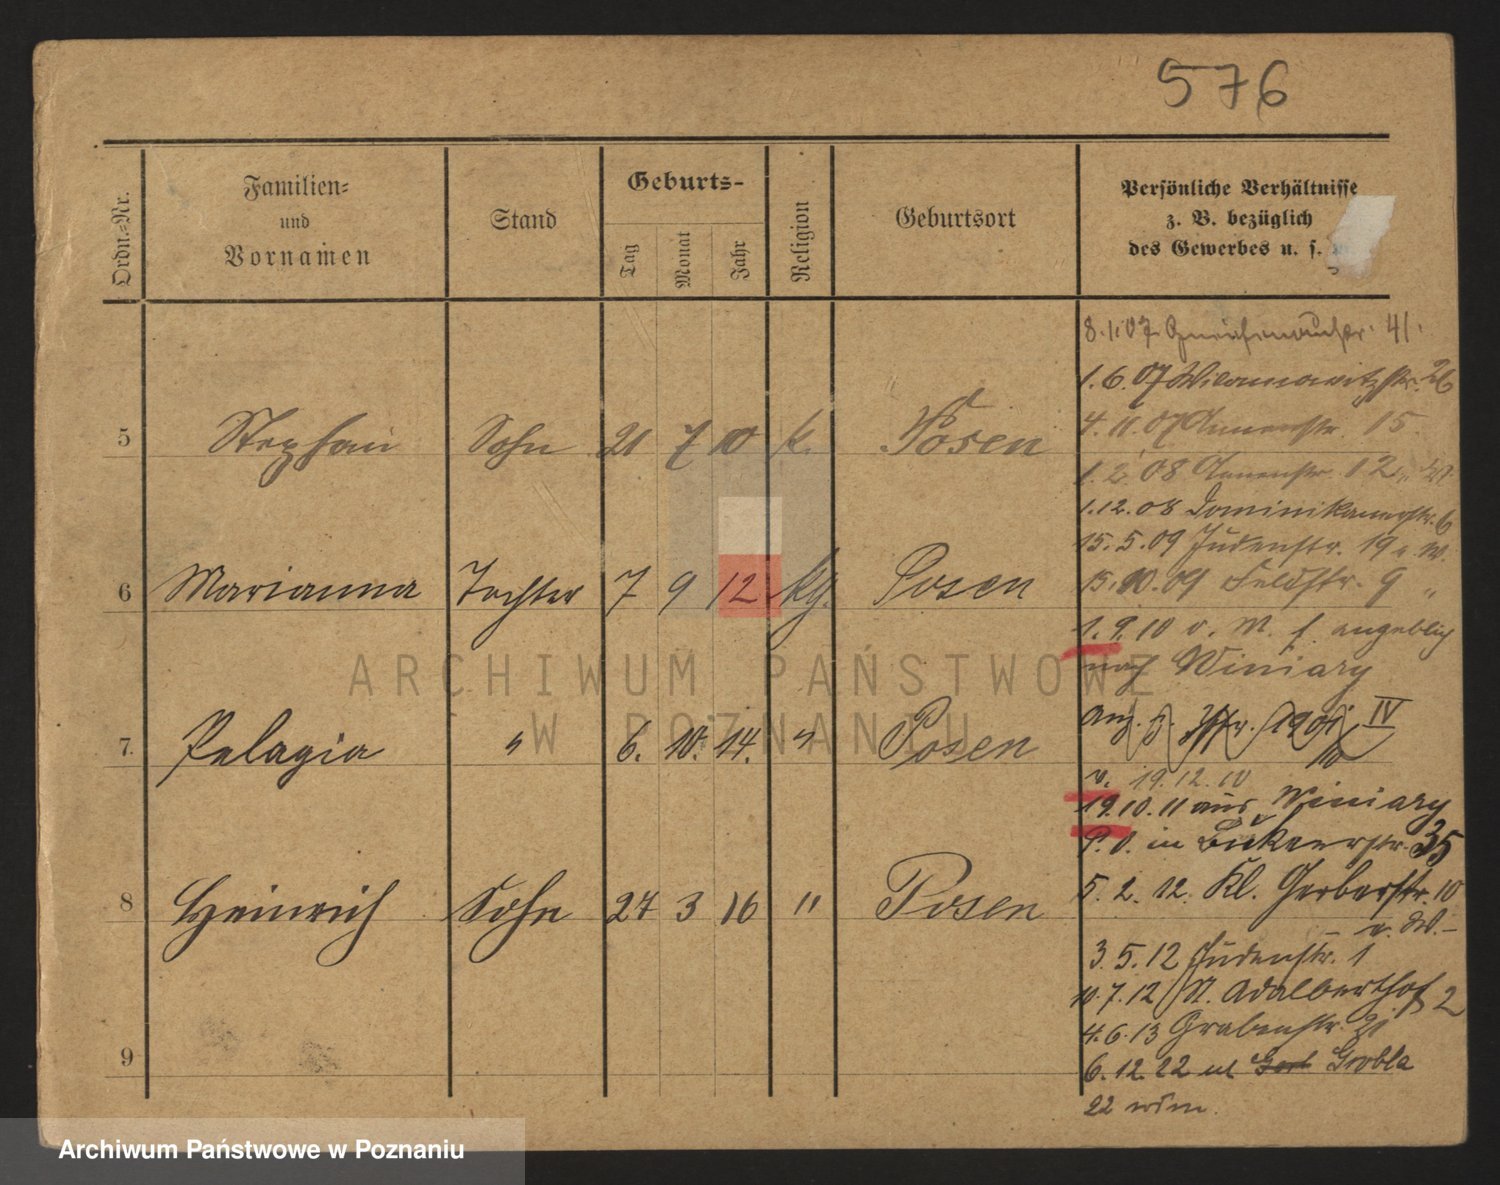 576
Ordn.-Nr.
Familien-
und
Vornamen
Stand
Geburts-
Tag
Monat
Jahr
Religion
Geburtsort
Persönliche Verhältnisse
z. B. bezüglich
des Gewerbes u. s.
5 Stephan Sohn 21 7 10 k. Posen
6 Marianna Tochter 7 9 12 kg. Posen
7. Pelagia " 6. 10. 14. " Posen
8 Heinrich Sohn 24 3 16 " Posen
9
8.1.07 Gneisenaustr. 41.
1.6.07 Wilamowitzstr. 26
4.11.07 Annenstr. 15.
1.2.08 Annenstr. 12
1.12.08 Dominikanerstr. 6
15.5.09 Judenstr. 19 v. W.
15.10.09 Feldstr. 9 "
1.9.10 v. M. f. angeblich
nach Winiary
IV
v. 19.12.10
19.10.11 aus Winiary
P. V. in Bukerstr. 35
5.2.12. Kl. Gerberstr. 10
v. W.
3.5.12 Judenstr. 1
10.7.12 St. Adalberthof 2
4.6.13 Grabenstr. 21
6.12.22 ul Grobla
22 wdm.
ARCHIWUM PAŃSTWOWE
W POZNANIU
Archiwum Państwowe w Poznaniu